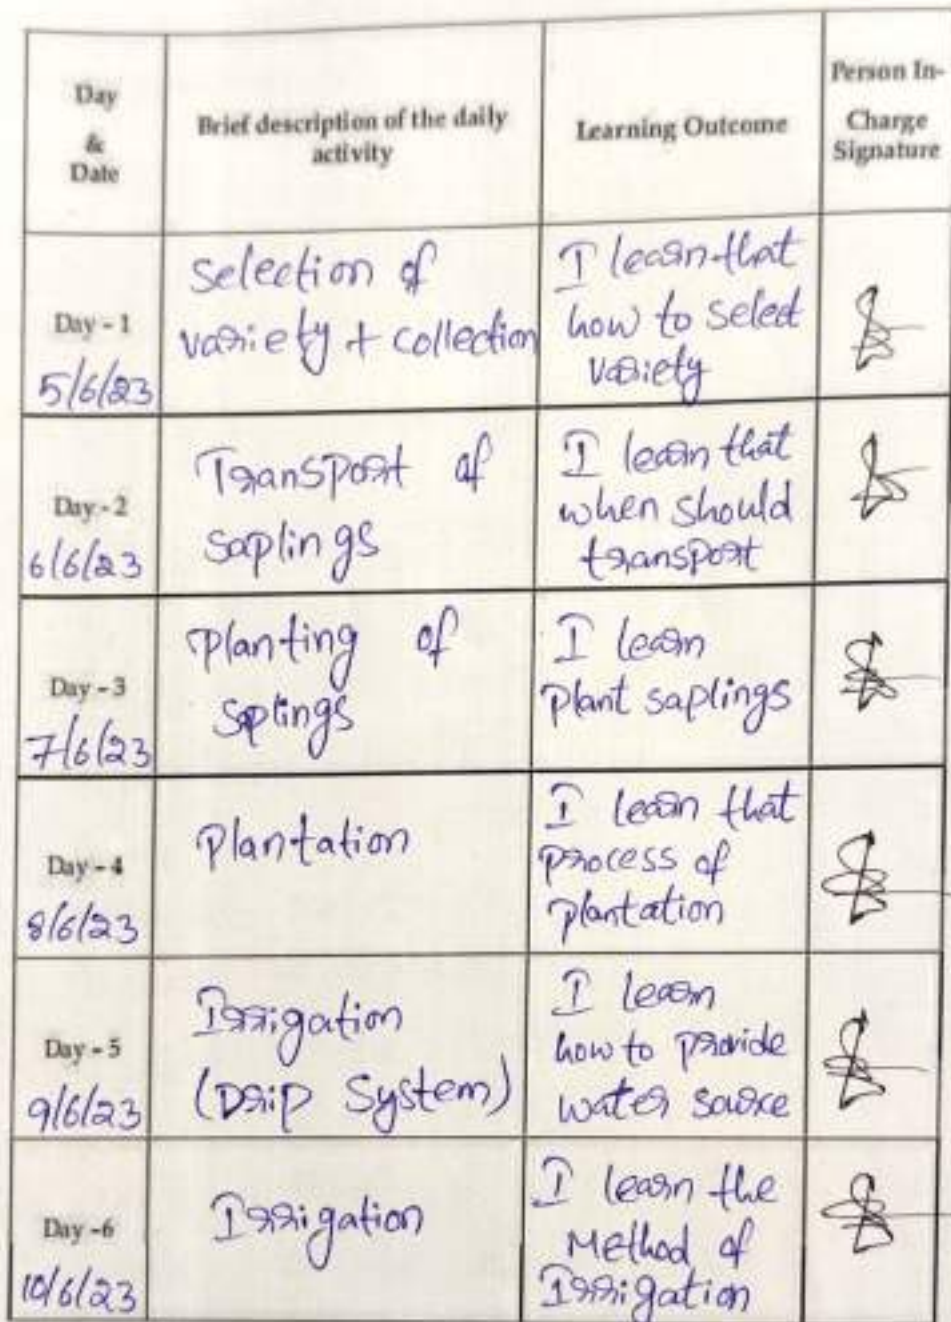 Day
&
Date
Brief description of the daily
activity
Learning Outcome
Person In-
Charge
Signature
Day - 1
5/6/23
Selection of
variety + collection
I learn that
how to select
variety
Day - 2
6/6/23
Transport of
saplings
I learn that
when should
transport
Day - 3
7/6/23
planting of
saplings
I learn
plant saplings
Day - 4
8/6/23
plantation
I learn that
process of
plantation
Day - 5
9/6/23
Irrigation
(Drip System)
I learn
how to provide
water source
Day -6
10/6/23
Irrigation
I learn the
Method of
Irrigation